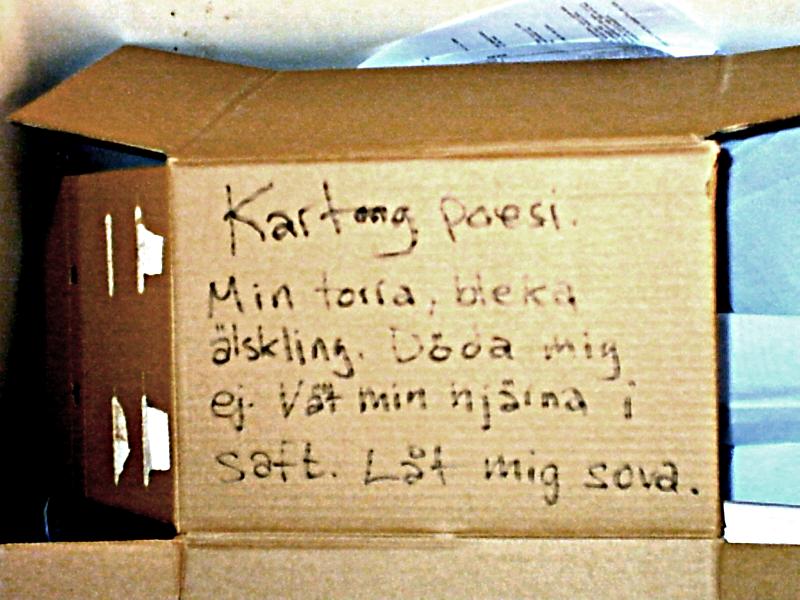 Kartong poesi.
Min torra, bleka
älskling. Döda mig
ej. Våt min hjärna i
saft. Låt mig sova.